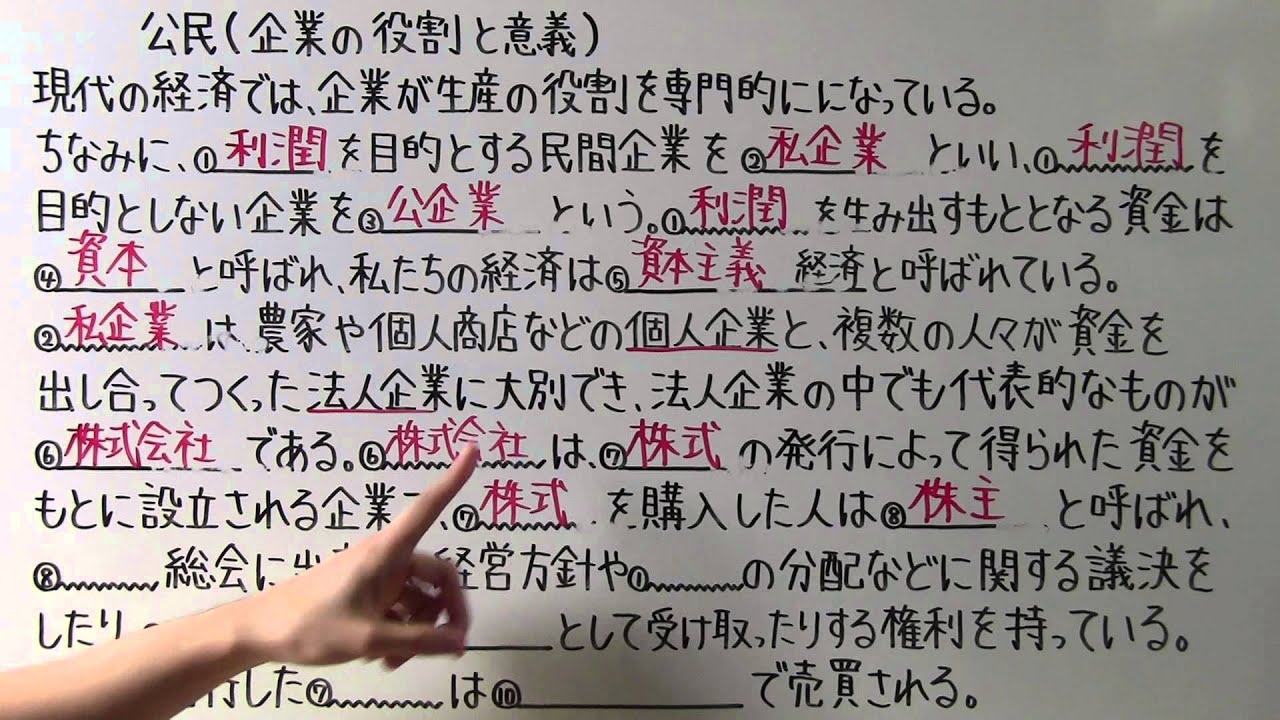 公民(企業の役割と意義)
現代の経済では、企業が生産の役割を専門的ににになっている。
ちなみに、①利潤を目的とする民間企業を②私企業といい、①利潤を
目的としない企業を③公企業という。①利潤を生み出すもととなる資金は
④資本と呼ばれ、私たちの経済は⑤資本主義経済と呼ばれている。
②私企業は、農家や個人商店などの個人企業と、複数の人々が資金を
出し合ってつくった法人企業に大別でき、法人企業の中でも代表的なものが
⑥株式会社である。⑥株式会社は、⑦株式の発行によって得られた資金を
もとに設立される企業 、⑦株式を購入した人は⑧株主と呼ばれ、
⑧総会に出 経営方針や①の分配などに関する議決を
したり として受け取ったりする権利を持っている。
行した⑦は⑩で売買される。